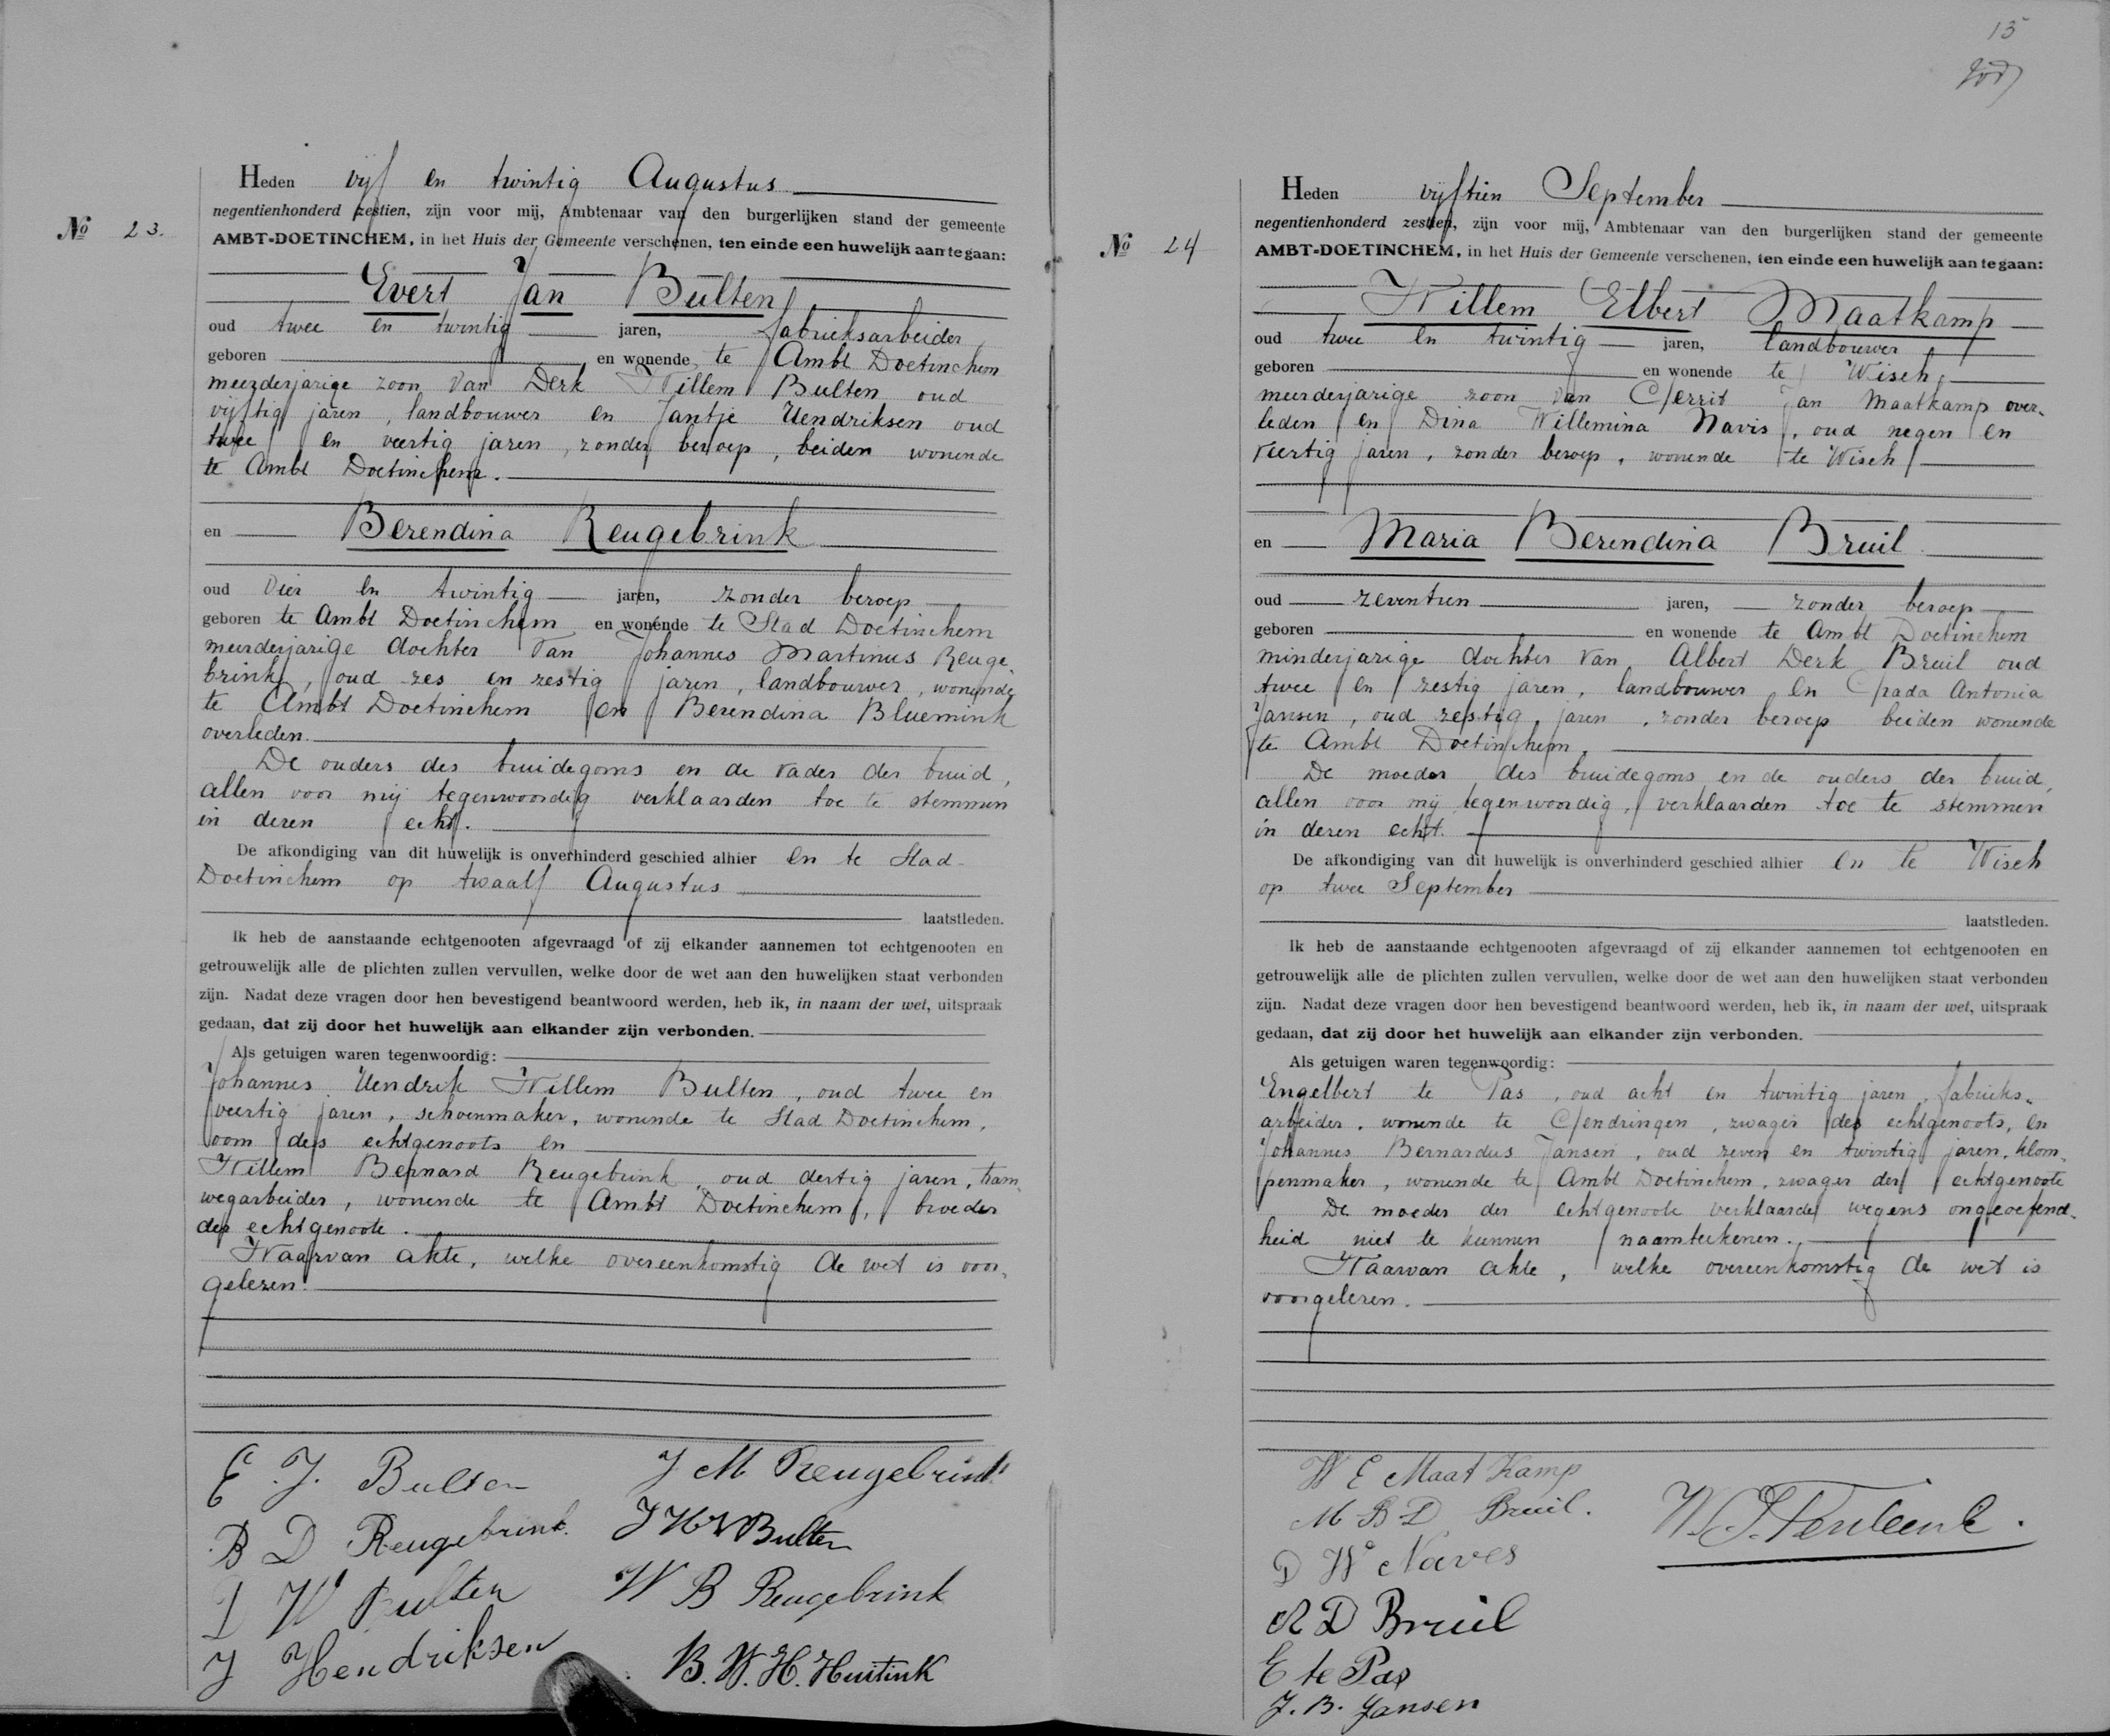 № 23.
Heden vijf en twintig Augustus
negentienhonderd zestien, zijn voor mij, Ambtenaar van den burgerlijken stand der gemeente
AMBT-DOETINCHEM, in het Huis der Gemeente verschenen, ten einde een huwelijk aan te gaan:
Evert Jan Bulten
oud twee en twintig jaren, fabrieksarbeider
geboren en wonende te Ambt Doetinchem
meerderjarige zoon van Derk Willem Bulten oud
vijftig jaren, landbouwer en Jantje Hendriksen oud
twee en veertig jaren, zonder beroep, beiden wonende
te Ambt Doetinchem.
en Berendina Reugebrink
oud vier en twintig jaren, zonder beroep
geboren te Ambt Doetinchem en wonende te Stad Doetinchem
meerderjarige dochter van Johannes Martinus Reuge-
brink, oud zes en zestig jaren, landbouwer, wonende
te Ambt Doetinchem en Berendina Bluemink
overleden.
De ouders des bruidegoms en de vader der bruid,
allen voor mij tegenwoordig verklaarden toe te stemmen
in deren echt.
De afkondiging van dit huwelijk is onverhinderd geschied alhier en te Stad-
Doetinchem op twaalf Augustus
laatstleden.
Ik heb de aanstaande echtgenooten afgevraagd of zij elkander aannemen tot echtgenooten en
getrouwelijk alle de plichten zullen vervullen, welke door de wet aan den huwelijken staat verbonden
zijn. Nadat deze vragen door hen bevestigend beantwoord werden, heb ik, in naam der wet, uitspraak
gedaan, dat zij door het huwelijk aan elkander zijn verbonden.
Als getuigen waren tegenwoordig:
Johannes Hendrik Willem Bulten, oud twee en
veertig jaren, schoenmaker, wonende te Stad Doetinchem,
oom des echtgenoots en
Willem Bernard Reugebrink, oud dertig jaren, tram-
wegarbeider, wonende te Ambt Doetinchem, broeder
der echtgenoote.
Waarvan akte, welke overeenkomstig de wet is voor-
gelezen.
E. J. Bulten
B D Reugebrink.
D W Bulten
J Hendriksen
J M Reugebrink
J H W Bulten
W B Reugebrink
B. W. H. Huitink
15
№ 24
Heden vijftien September
negentienhonderd zestien, zijn voor mij, Ambtenaar van den burgerlijken stand der gemeente
AMBT-DOETINCHEM, in het Huis der Gemeente verschenen, ten einde een huwelijk aan te gaan:
Willem Elbert Maatkamp
oud twee en twintig jaren, landbouwer
geboren en wonende te Wisch,
meerderjarige zoon van Gerrit Jan Maatkamp over-
leden en Dina Willemina Navis, oud negen en
veertig jaren, zonder beroep, wonende te Wisch
en Maria Berendina Bruil
oud zeventien jaren, zonder beroep
geboren en wonende te Ambt Doetinchem
minderjarige dochter van Albert Derk Bruil oud
twee en zestig jaren, landbouwer en Grada Antonia
Jansen, oud zestig jaren, zonder beroep beiden wonende
te Ambt Doetinchem.
De moeder des bruidegoms en de ouders der bruid,
allen voor mij tegenwoordig, verklaarden toe te stemmen
in deren echt.
De afkondiging van dit huwelijk is onverhinderd geschied alhier en te Wisch
op twee September
laatstleden.
Ik heb de aanstaande echtgenooten afgevraagd of zij elkander aannemen tot echtgenooten en
getrouwelijk alle de plichten zullen vervullen, welke door de wet aan den huwelijken staat verbonden
zijn. Nadat deze vragen door hen bevestigend beantwoord werden, heb ik, in naam der wet, uitspraak
gedaan, dat zij door het huwelijk aan elkander zijn verbonden.
Als getuigen waren tegenwoordig:
Engelbert te Pas, oud acht en twintig jaren, fabrieks-
arbeider, wonende te Gendringen, zwager des echtgenoots, en
Johannes Bernardus Jansen, oud zeven en twintig jaren, klom-
penmaker, wonende te Ambt Doetinchem, zwager der echtgenoote
De moeder der echtgenoote verklaarde wegens ongeoefend-
heid niet te kunnen naamteekenen.
Waarvan akte, welke overeenkomstig de wet is
voorgelezen.
W E Maat Kamp
M B D Bruil.
D W Naves
A D Bruil
E te Pas
J. B. Jansen